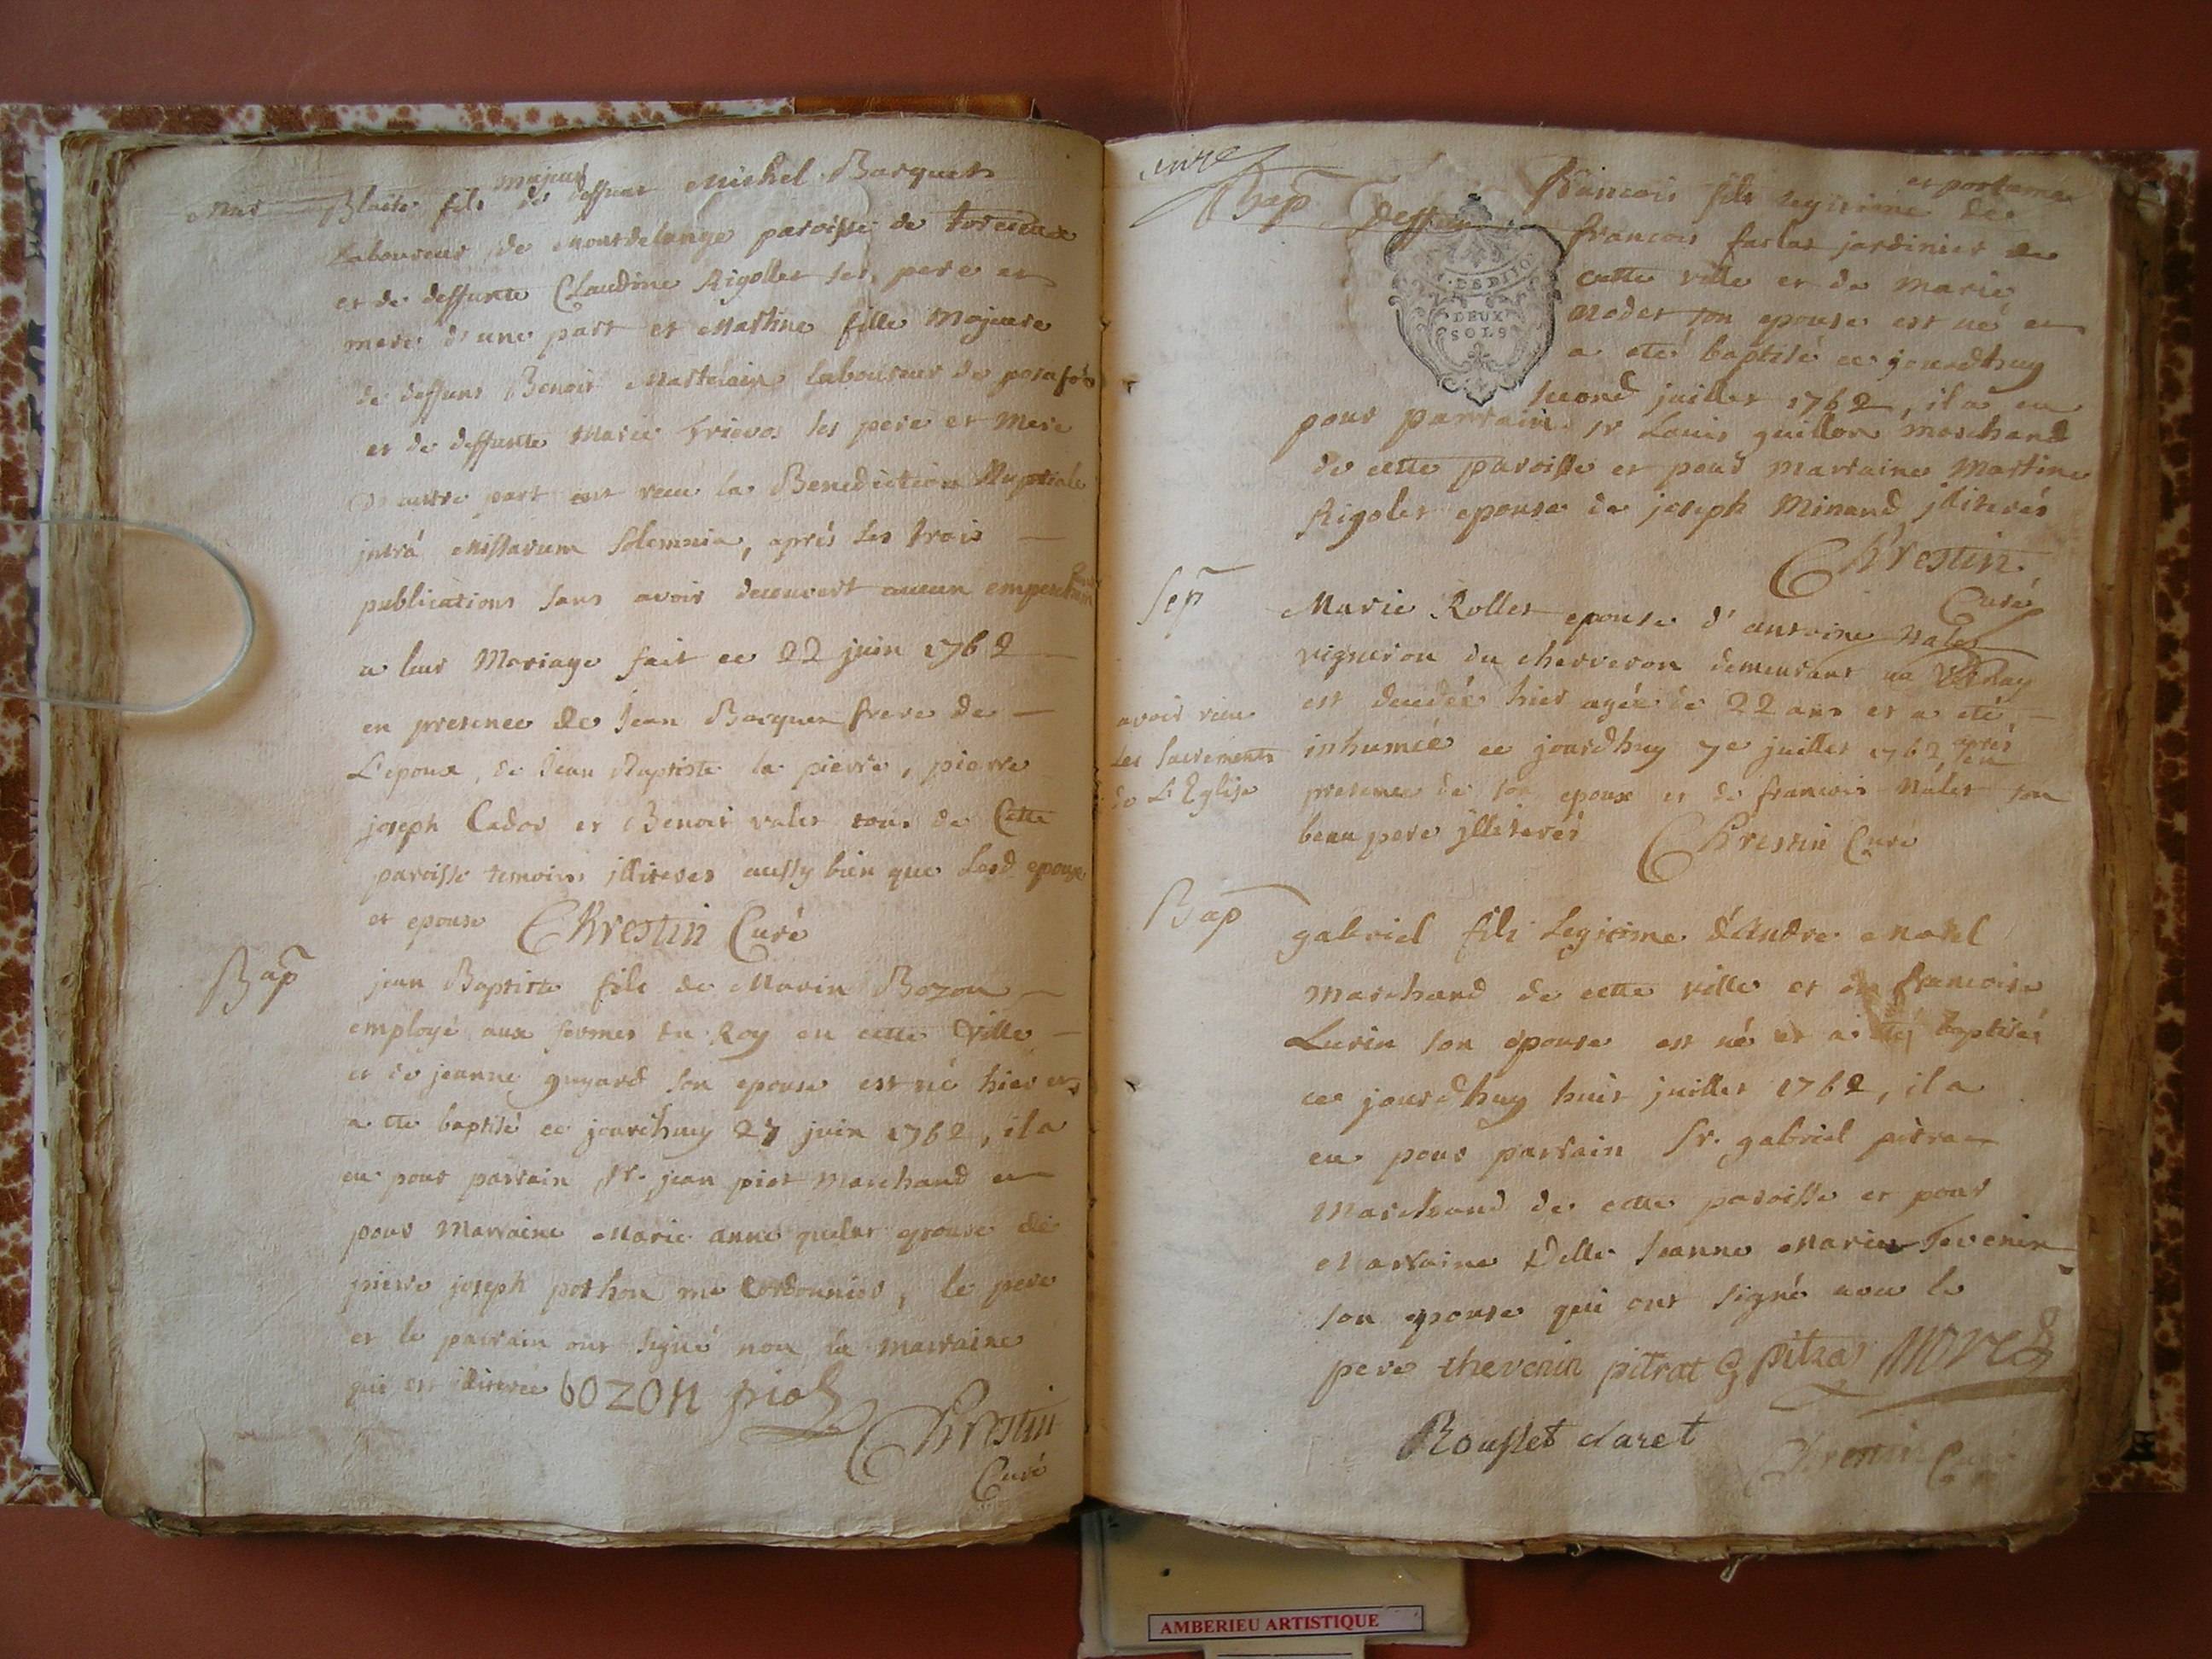 Mar Blaise fils majeur de deffunt Michel Barquet
Laboureur de Montdelange paroisse de
et de deffunte Claudine Rigollet ses pere et
mere d'une part et Martine fille Majeure
de deffunt Benoit Martelain laboureur de
et de deffunte Marie ses pere et Mere
d'autre part ont recu la Benediction Nuptiale
jntrá Missarum Solemnia, aprés les trois
publications sans avoir decouvert aucun
a leur Mariage fait ce 22 juin 1762
en presence de Jean Barquet frere de
L'epoux, de Jean Baptiste la pierre, pierre
joseph Cador et Benoit valet tous de Cette
paroisse temoins illiteres aussy bien que Lesd epoux
et epouse Chrestin Curé
Bap jean Baptiste fils de Marin Bozon
employé aux fermes du Roy en cette Ville
et de jeanne guyard son epouse est né hier et
a ete baptisé ce jourdhuy 27 juin 1762, il a
eu pour parrain sr. jean piot Marchand et
pour Marraine Marie anne epouse de
pierre joseph pothon me Cordonnier, le pere
et le parrain ont signé non la marraine
qui est illiterée bozon piot
Chrestin
Curé
Bap françois fils legitime et
deffun françois jardinier de
cette ville et de Marie
Nodet son epouse est né et
DE DIJO
DEUX
SOLS
a eté baptisé ce jourdhuy
second juillet 1762, il a eu
pour parrain sr Louis guillon marchand
de cette paroisse et pour Marraine Martine
Rigolet epouse de joseph Minand jlliterés
Chrestin
Curé
Sep Marie Rollet epouse d'antoine Nalet
vigneron du cherveron demeurant
est decedée hier agée de 22 ans et a eté
inhumée ce jourdhuy 7e juillet 1762, aprés
avoir recu
les sacrements
de L'Eglise
en
presence de son epoux et de francois Nalet son
beau pere jlliterés Chrestin Curé
Bap gabriel fils Legitime d'Andre Morel
Marchand de cette ville et de francoise
Lurin son epouse est né et a eté baptisé
ce jourdhuy huit juillet 1762, il a
eu pour parrain Sr. gabriel pitrat
Marchand de cette paroisse et pour
Marraine Delle Jeanne Marie Tevenin
son epouse qui ont signé avec le
pere thevenin pitrat G pitrat Morel
Rousset claret Chrestin Curé
AMBERIEU ARTISTIQUE